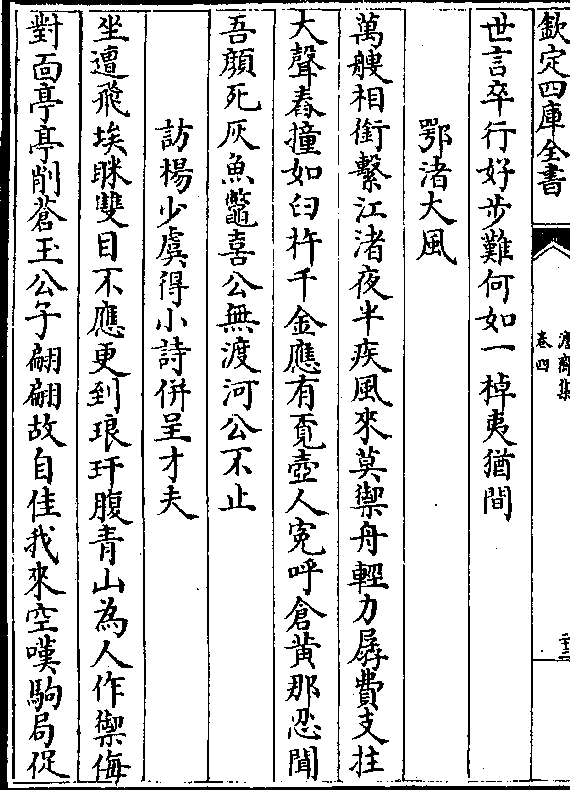 欽定四庫全書
卷四
世言卒行好步難何如一棹夷猶間
鄂渚大風
萬艘相銜繫江渚夜半疾風來莫禦舟輕力孱費支拄
大聲舂撞如臼杵千金應有覔壺人寃呼倉黄那忍聞
吾顔死灰魚鼈喜公無渡河公不止
訪楊少虞得小詩併呈才夫
坐遭飛埃眯雙目不應更到琅玕腹青山為人作禦侮
對面亭亭削蒼玉公子翩翩故自佳我來空嘆駒局促